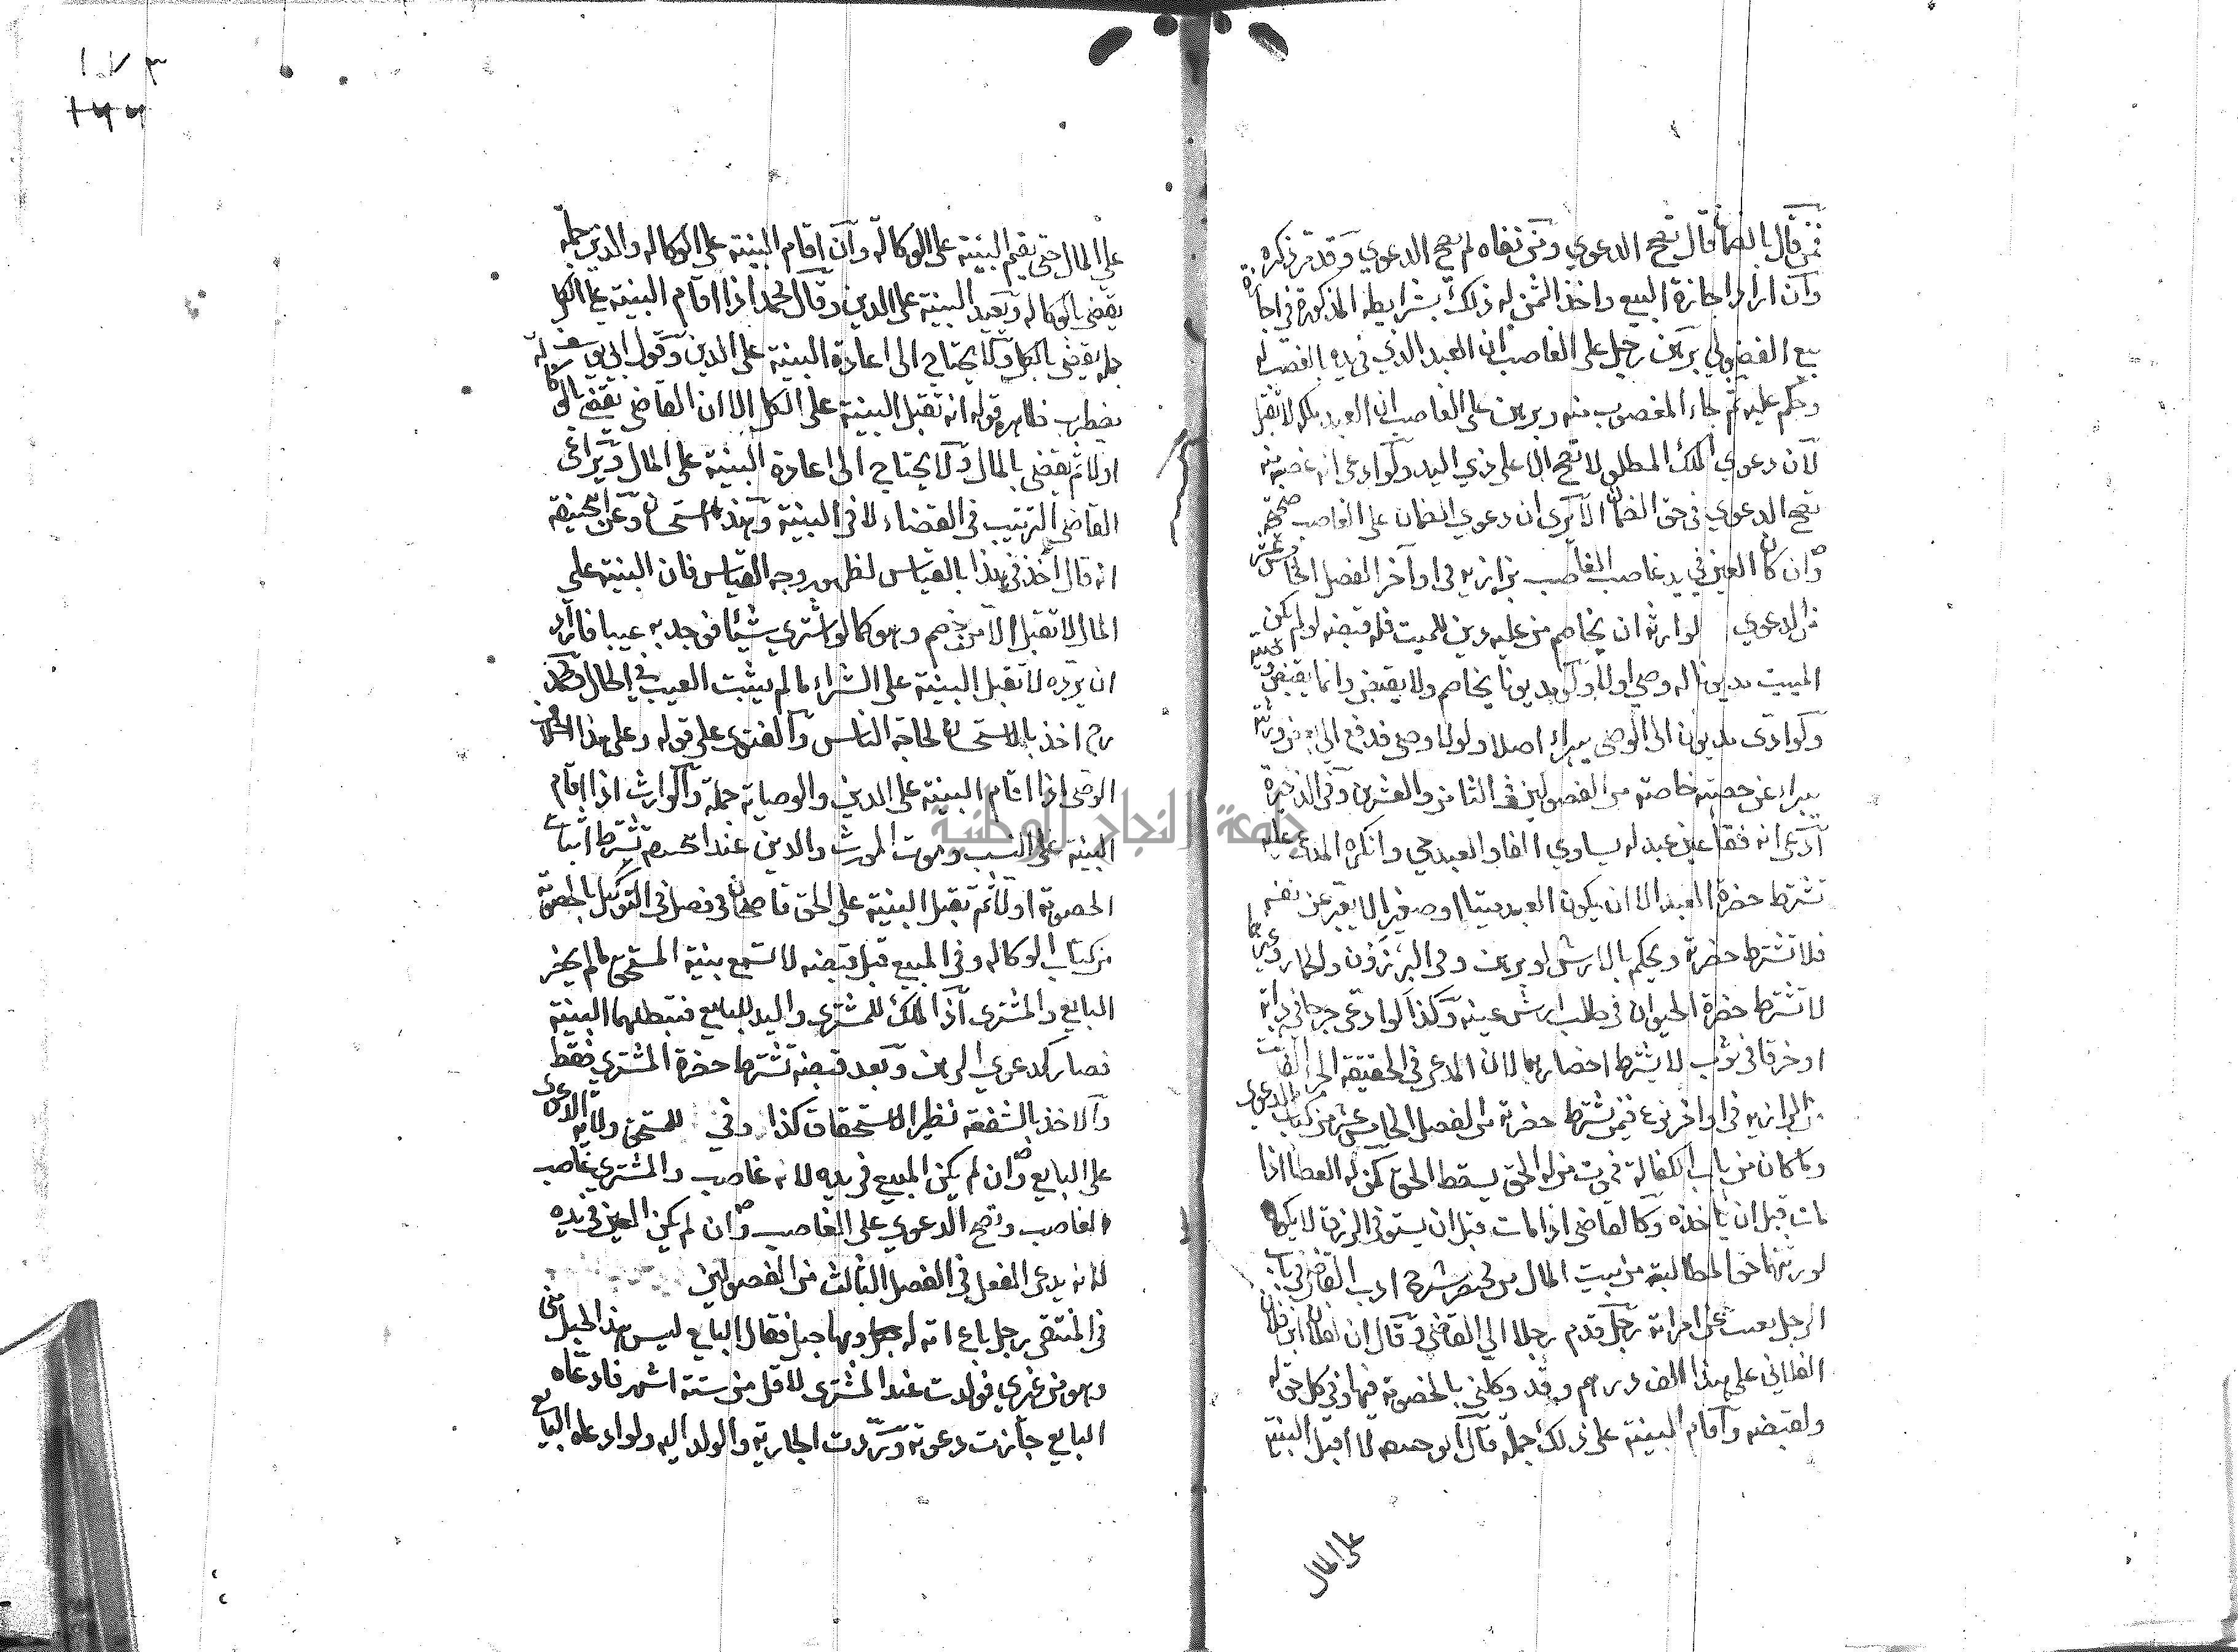 فمن قال بالضمان قال تصح الدعوي ومن نفاه لم تصح الدعوي وقد مر ذكره
وان اراد اجازة البيع واخذ الثمن له ذلك بشرايطه المذكورة في اجازة
بيع الفضولي برهن رجل على الغاصب ان العبد الذي في يده بالغصب له
وحكم عليه ثم جاء المغصوب منه وبرهن على الغاصب ان العبد ملكه لا تقبل
لان دعوي الملك المطلق لا تصح الا على ذي اليد ولو ادعى انه غصبه منه
تصح الدعوي في حق الضمان الا يرى ان دعوي الضمان على الغاصب صحيحة
وان كان العين في يد غاصب الغاصب بزازيه في اواخر الفصل الخامس عشر
من الدعوي لوارثه ان يخاصم من عليه دين للميت فله قبضه لو لم يكن
الميت مديونا له وصي اولا ولو مديونا يخاصم ولا يقبض وانما يقبض وصيه
ولو ادى مديون الى الوصى يبراء اصلا ولو لا وصى فدفع الى بعض ورثته
يبراء عن حصته خاصة من الفصولين في الثامن والعشرين وفي الذخيرة
ادعى انه فقأ عين عبد له يساوي الفا والعبد حي وانكره المدعى عليه
تشترط حضرة العبد الا ان يكون العبد ميتا او صغيرا لا يعبر عن نفسه
فلا تشترط حضرته ويحكم بالارش لو برهن وفي البرذون والحمار وغيرهما
لا تشترط حضرة الحيوان في طلب ارش عينه وكذا لو ادعى جرحا في دابة
او خرقا في ثوب لا يشترط احضارهما لان المدعى في الحقيقة الجزء الفائت
من البزازيه في اواخر نوع فيمن يشترط حضرته من الفصل الخامس عشر من كتاب الدعوى
وما كان من باب الكفالة فبموت من له الحق يسقط الحق كمن له العطا اذا
مات قبل ان ياخذه وكالقاضي اذا مات قبل ان يستوفى الرزق لا يكون
لورثتهما حق المطالبة من بيت المال من مختصر شرح ادب القاضي في باب
الرجل يعتب على امراته رجل قدم رجلا الى القاضي وقال ان لفلان ابن فلان
الفلاني على هذا الف درهم وقد وكلني بالخصومة فيها وفي كل حق له
ولقبضه واقام البينة على ذلك جملة قال ابو حنيفه لا اقبل البينة
على المال
على المال حتى يقيم البينة على الوكالة وان اقام البينة على الوكاله والدين جملة
يقضى بالوكاله ويعيد البينة على الدين وقال محمد اذا اقام البينة على الكل
جملة يقضى بالكل ولا يحتاج الى اعادة البينة على الدين وقول ابي يوسف
يضطرب ظاهره قوله انه تقبل البينة على الكل الا ان القاضي يقضي بالوكالة
اولا ثم يقضى بالمال ولا يحتاج الى اعادة البينة على المال ويراعى
القاضى الترتيب في القضاء لا في البينة وهذا استحسان وعن ابي حنيفه
انه قال اخذ في هذا بالقياس لظهور وجه القياس فان البينة على
المال لا تقبل الا من خصم وهو كما لو اشترى شيئا فوجد به عيبا فاراد
ان يرده لا تقبل البينة على الشراء ما لم يثبت العيب في الحال ومحمد
رح اخذ بالاستحسان لحاجة الناس والفتوى على قوله وعلى هذا الخلاف
الوصى اذا اقام البينة على الدين والوصاية جملة والوارث اذا اقام
البينة على النسب وموت المورث والدين عند ابي حنيفه تشترط اثبات
الخصومة اولا ثم تقبل البينة على الحق قاضيخان في فصل في التوكيل بالخصومة
من كتاب الوكاله وفي المبيع قبل قبضه لا تسمع بينة المستحق ما لم يحضر
البايع والمشترى اذ الملك للمشترى واليد للبايع فتبطلهما البينة
فصار كدعوي الرهن وبعد قبضه تشترط حضرة المشترى فقط
والاخذ بالشفعة نظير الاستحقاق كذا وفي للمستحق ولاية الدعوى
على البايع وان لم يكن المبيع في يده لانه غاصب والمشترى غاصب
الغاصب وتصح الدعوي على الغاصب وان لم يكن العين في يده
لانه يدعى الفعل في الفصل الثالث من الفصولين
في المنتقى رجل باع امة له وبها حبل فقال البايع ليس هذا الحبل منى
وهو من غيري فولدت عند المشترى لاقل من ستة اشهر فادعاه
البايع جازت دعوته وردت الجارية والولد اليه ولو ادعاه البايع
١٠٧٣
جامعة النجاح الوطنية